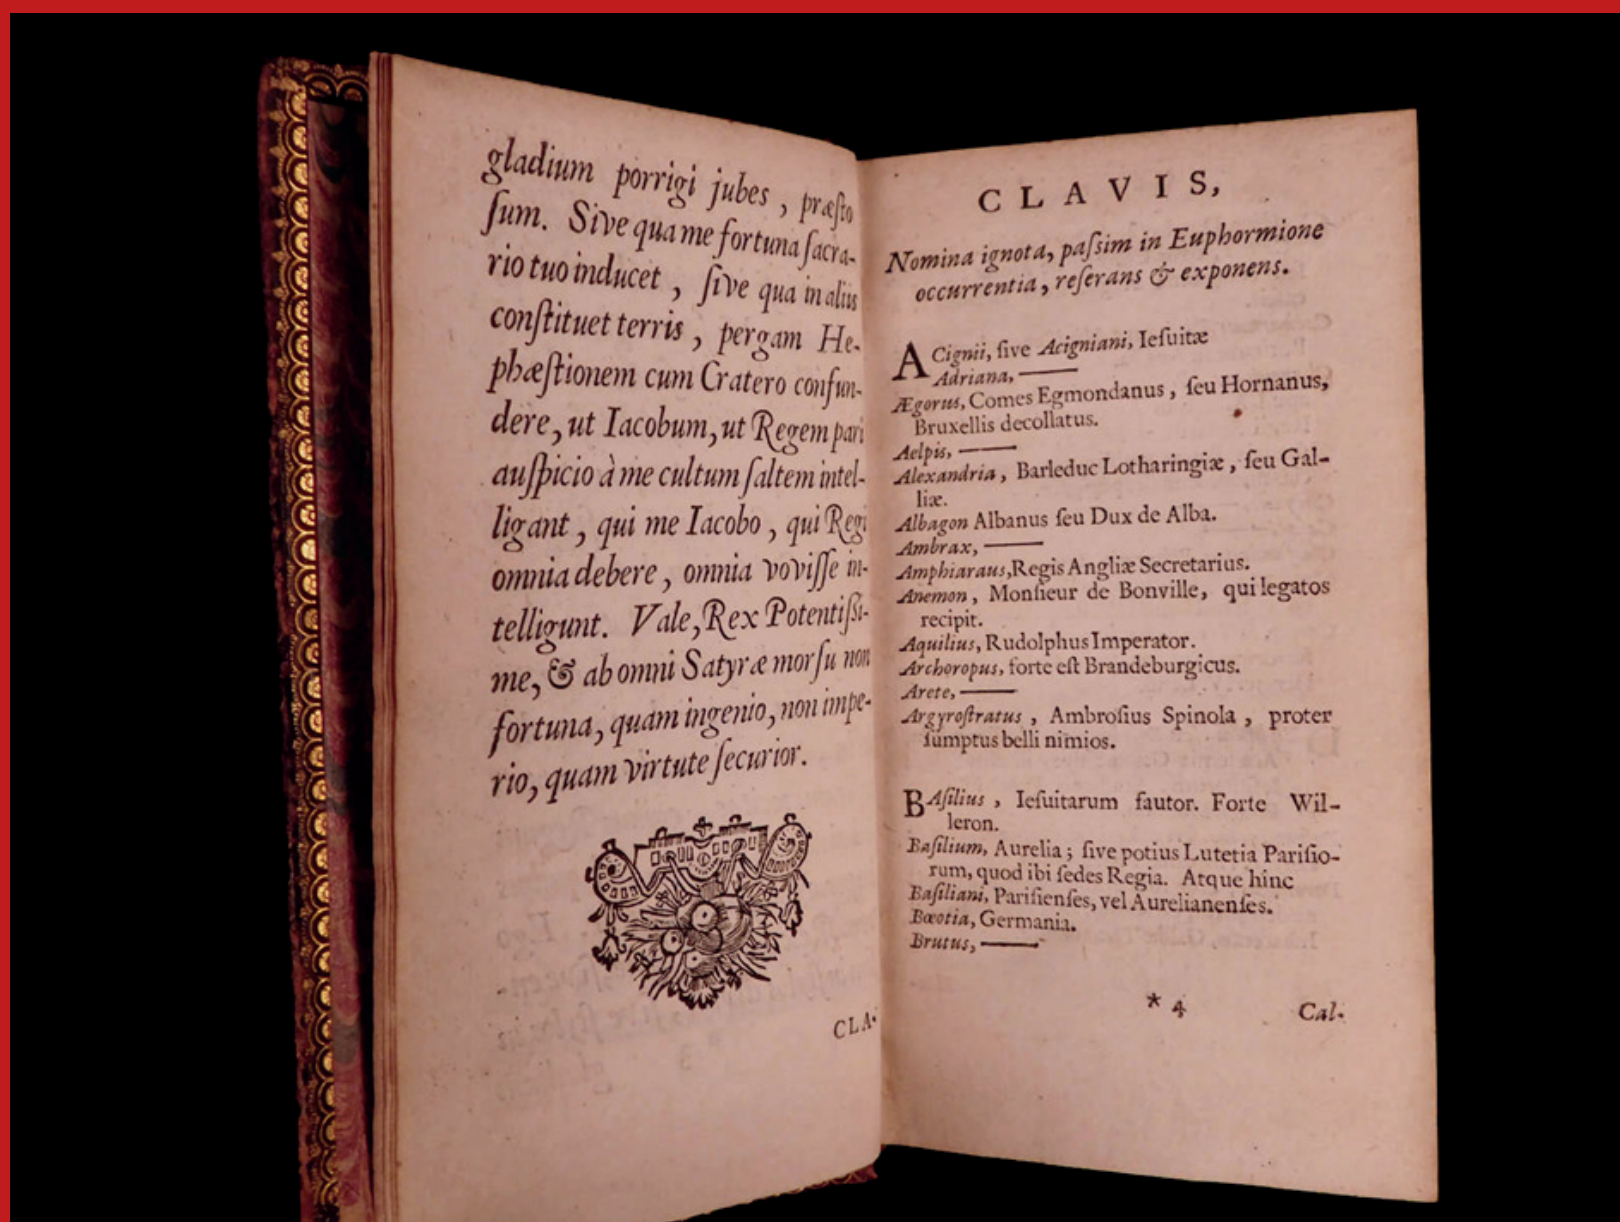 gladium porrigi jubes, præſto
ſum. Sive qua me fortuna ſacra-
rio tuo inducet, ſive qua in aliis
conſtituet terris, pergam He-
phæſtionem cum Cratero confun-
dere, ut Iacobum, ut Regem pari
auſpicio à me cultum ſaltem intel-
ligant, qui me Iacobo, qui Regi
omnia debere, omnia voviſſe in-
telligunt. Vale, Rex Potentiſſi-
me, & ab omni Satyræ morſu non
fortuna, quam ingenio, non impe-
rio, quam virtute ſecurior.
CLA-
CLAVIS,
Nomina ignota, paſſim in Euphormione
occurrentia, reſerans & exponens.
ACignii, ſive Acigniani, Ieſuitæ
Adriana, ——
Ægorus, Comes Egmondanus, ſeu Hornanus,
Bruxellis decollatus.
Aelpis, ——
Alexandria, Barleduc Lotharingiæ, ſeu Gal-
liæ.
Albagon Albanus ſeu Dux de Alba.
Ambrax, ——
Amphiaraus, Regis Angliæ Secretarius.
Anemon, Monſieur de Bonville, qui legatos
recipit.
Aquilius, Rudolphus Imperator.
Archoropus, forte eſt Brandeburgicus.
Arete, ——
Argyroſtratus, Ambroſius Spinola, proter
ſumptus belli nimios.
BAſilius, Ieſuitarum fautor. Forte Wil-
leron.
Baſilium, Aurelia; ſive potius Lutetia Pariſio-
rum, quod ibi ſedes Regia. Atque hinc
Baſiliani, Pariſienſes, vel Aurelianenſes.
Bœotia, Germania.
Brutus, ——
* 4 Cal-